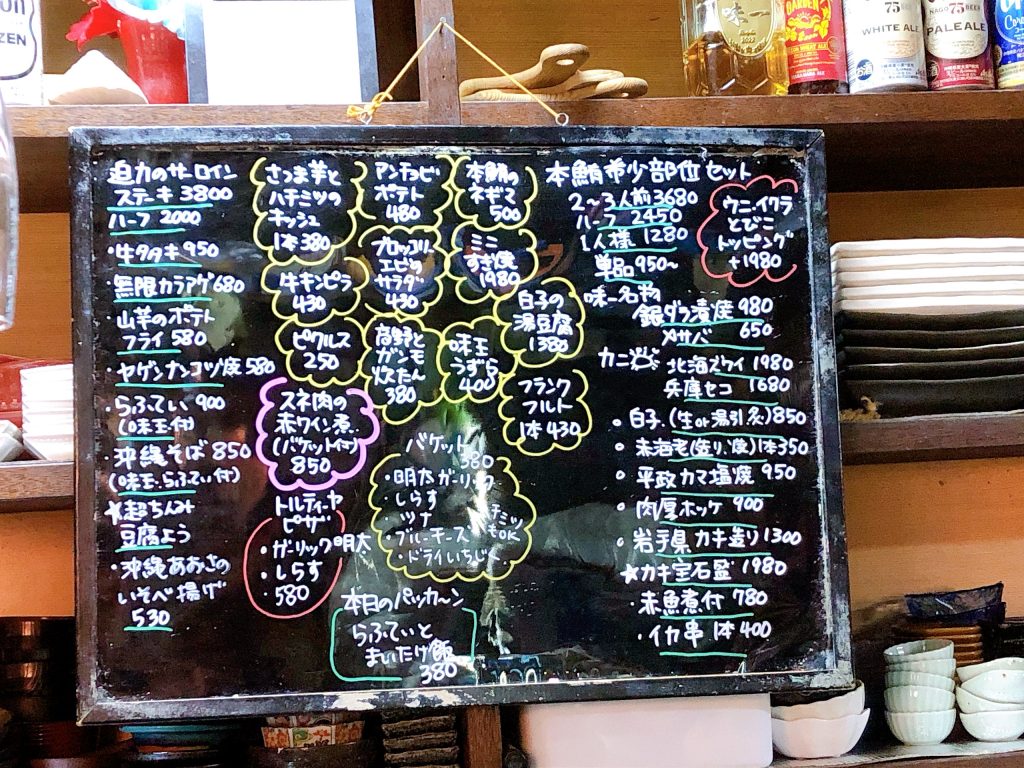 迫力のサーロイン
ステーキ 3800
ハーフ 2000
・牛タタキ 950
・無限カラアゲ 680
・山芋のポテト
フライ 580
・ヤゲンナンコツ焼 580
・らふてい 900
(味玉付)
・沖縄そば 850
(味玉、らふてい付)
★超ちんみ
豆腐よう
・沖縄あおさの
いそべ揚げ
530
さつま芋と
ハチミツの
キッシュ
1本 380
牛キンピラ
430
ピクルス
250
スネ肉の
赤ワイン煮
(バケット付)
850
トルティーヤ
ピザ
・ガーリック明太
・しらす
・580
アンチョビ
ポテト
480
ブロッコリ
エビの
サラダ
430
高野と
ガンモ
炊たん
380
本鮪の
ネギマ
500
ミニ
すき焼
1980
味玉
うずら
400
白子の
湯豆腐
1380
フランク
フルト
1本 430
バケット
380
・明太ガーリック
・しらす
・ツナ
・ブルーチーズ
・ドライいちじく
本日のパッカ〜ン
らふていと
まいたけ飯
380
本鮪希少部位セット
2〜3人前 3680
ハーフ 2450
1人様 1280
単品 950〜
ウニ、イクラ
とびこ
トッピング
+1980
味一名物
銀ダラ煮焼 980
〆サバ 650
カニ 北海ズワイ 1980
兵庫セコ 1680
・白子(生or湯引、炙)850
・赤海老(造り、焼)1本350
・平政カマ塩焼 950
・肉厚ホッケ 900
・岩手県カキ造り 1300
★カキ宝石盛 1980
・赤魚煮付 780
・イカ串 1本 400
味一
75
WHITE ALE
NAGO 75 BEER
PALE ALE
ZEN